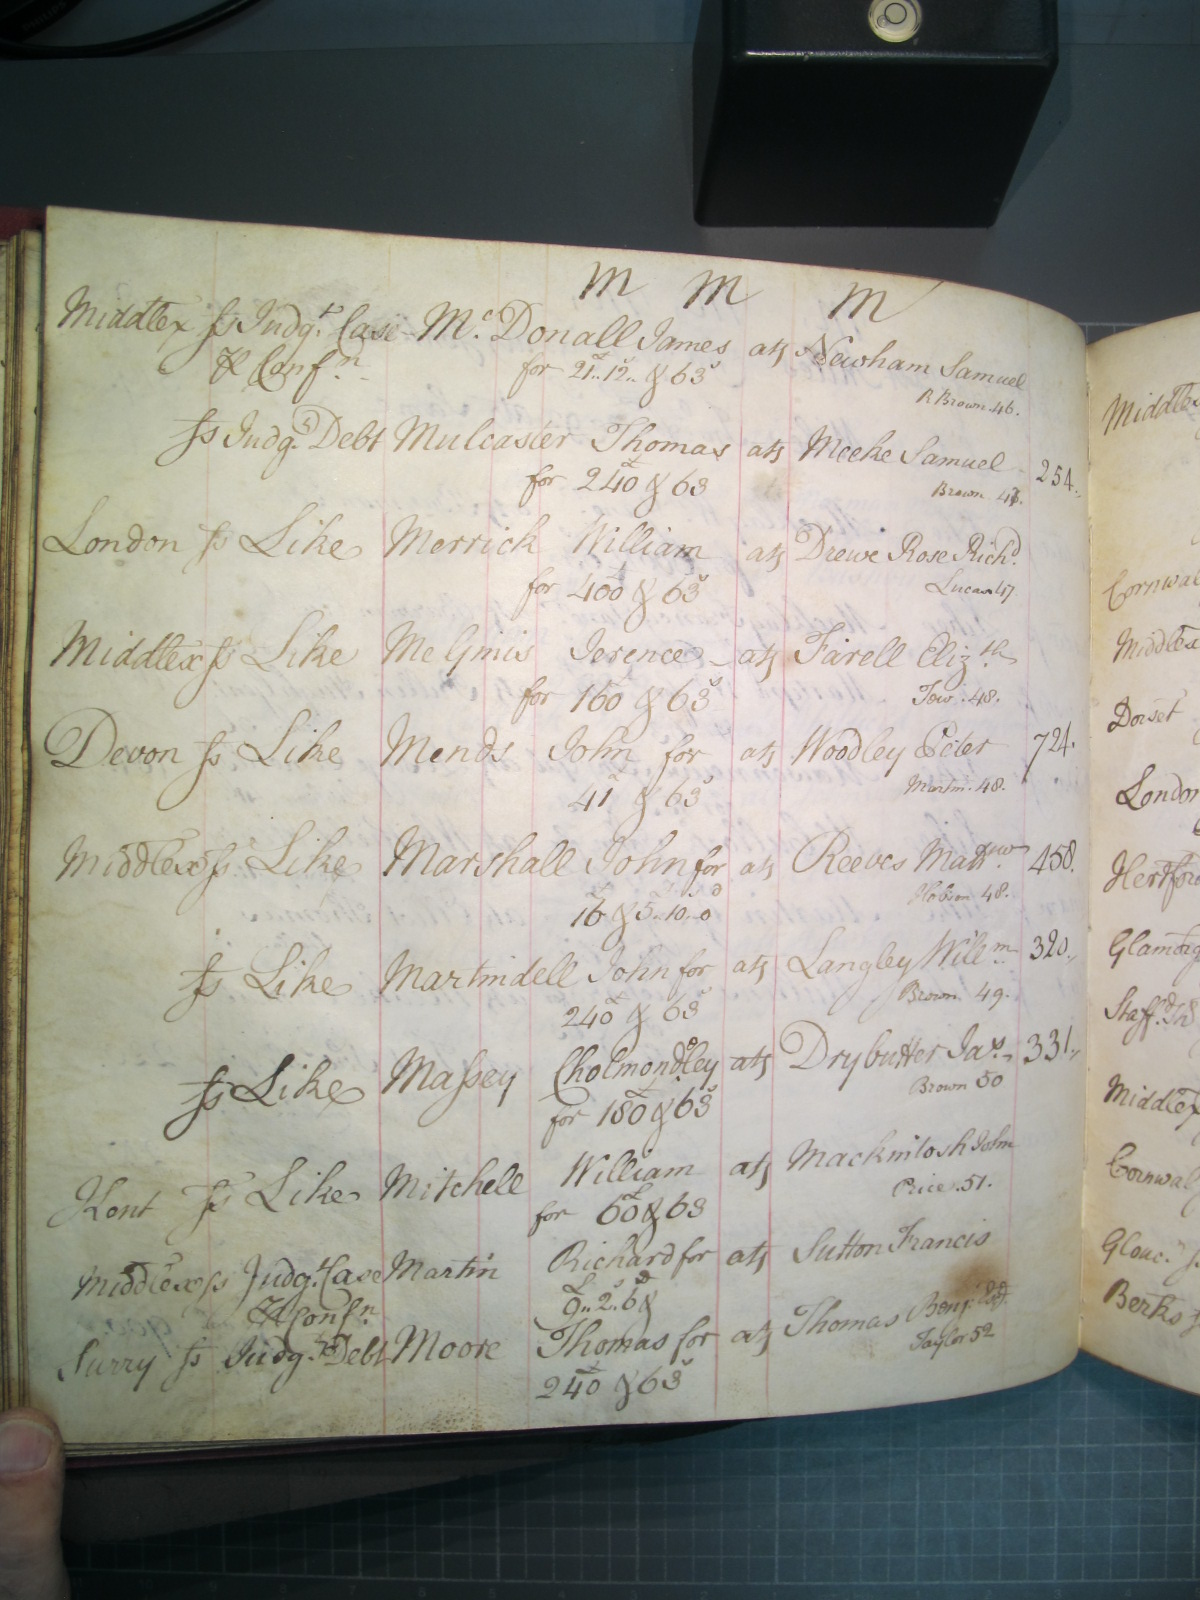 M M M
Middlex ss Judgt. Case Mc Donall James ats Newham Samuel
& Confn. for 21..12.. & 63s
R Brown 46.
ss Judgt. Debt Mulcaster Thomas ats Meeke Samuel 254.
for 240 & 63
Brown 47.
London ss Like Merrick William ats Drewe Rose Richd.
for 400 & 63s
Lucas 47.
Middlex ss Like McGinis Terence ats Farell Elizth
for 160 & 63s
Tow. 48.
Devon ss Like Mends John for ats Woodley Peter 724.
41 & 63s
Martin. 48.
Middlex ss Like Marshall John for ats Reeves Matthw. 458.
16 & 5..10..0
Hobson 48.
ss Like Martindell John for ats Langley Willm. 320.
240 & 63
Brown 49.
ss Like Massey Cholmondeley ats Drybutter Jas. 331.
for 180 & 63s
Brown 50
Kent ss Like Mitchell William ats Mackintosh John
for 60 & 63
Price. 51.
Middlex ss Judgt. Case Martin Richard for ats Sutton Francis
& Confn. 9..2..6 &
Surry ss Judgt. Debt Moore Thomas for ats Thomas Benj.
Taylor 52
240 & 63s
Middlex
Cornwal
Middlex
Dorset
London
Hertford
Glamorg
Staff.
Middlex
Cornwal
Glouc.
Berks